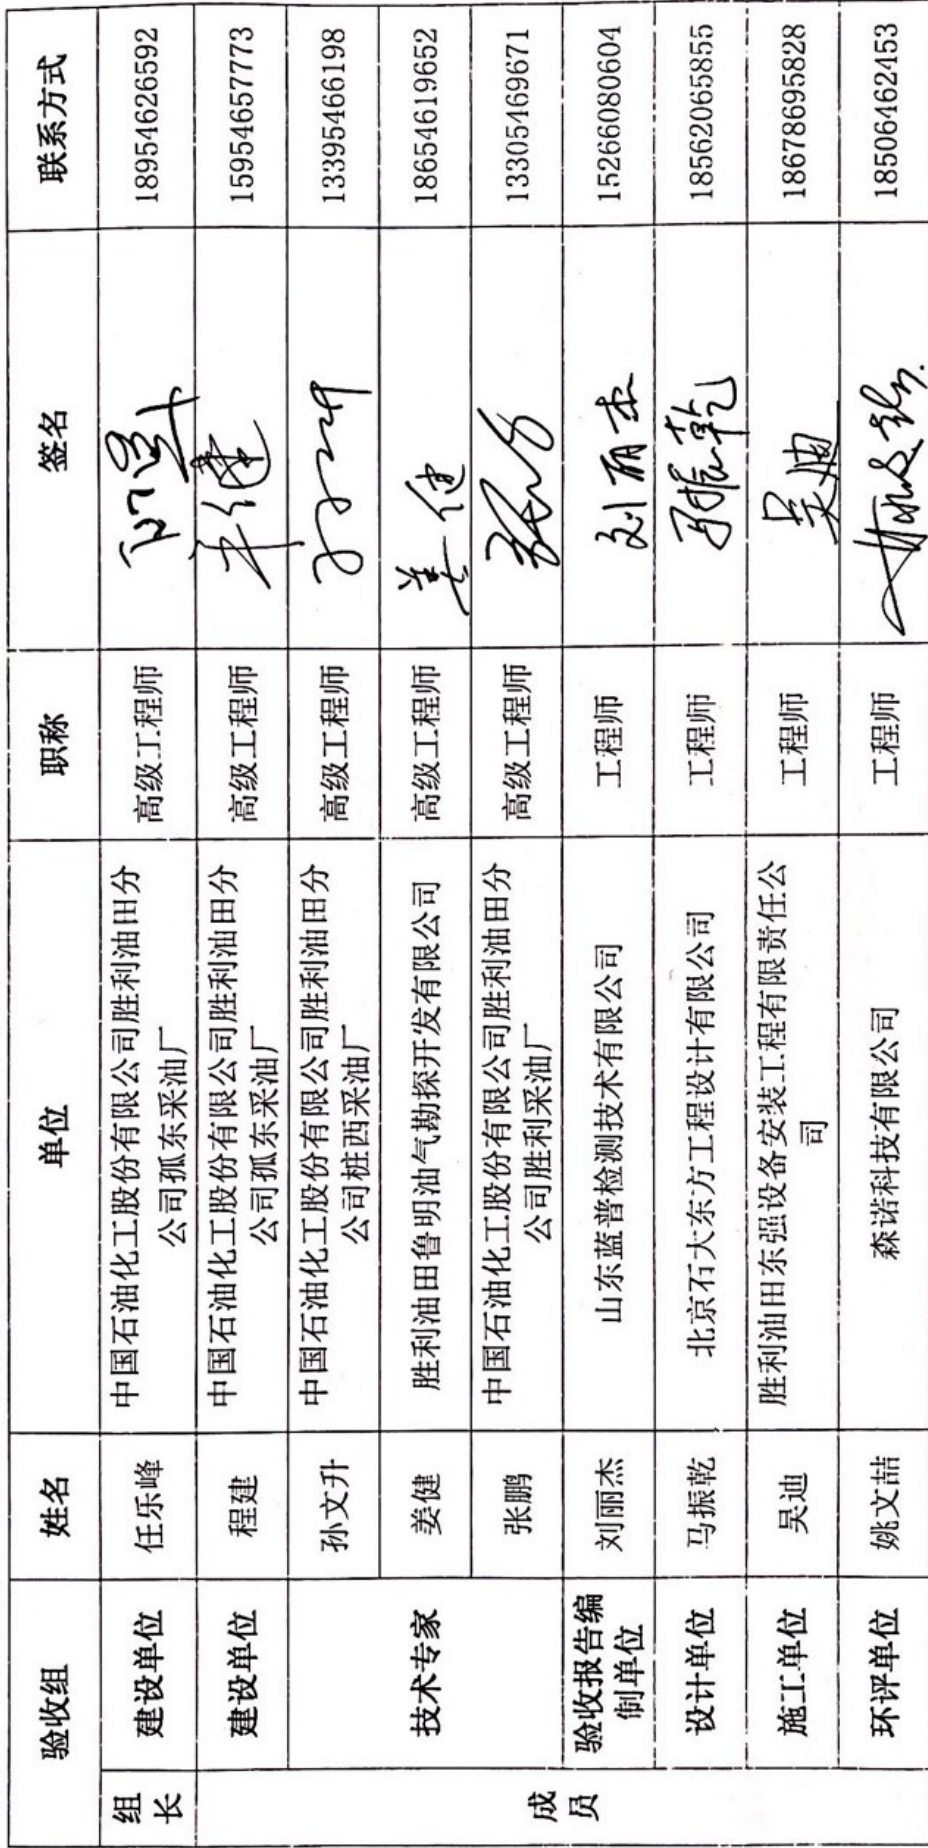 验收组 姓名 单位 职称 签名 联系方式
组长 建设单位 任乐峰 中国石油化工股份有限公司胜利油田分
公司孤东采油厂 高级工程师 18954626592
成员 建设单位 程建 中国石油化工股份有限公司胜利油田分
公司孤东采油厂 高级工程师 程健 15954657773
技术专家 孙文升 中国石油化工股份有限公司胜利油田分
公司桩西采油厂 高级工程师 13395466198
姜健 胜利油田鲁明油气勘探开发有限公司 高级工程师 姜健 18654619652
张鹏 中国石油化工股份有限公司胜利油田分
公司胜利采油厂 高级工程师 13305469671
验收报告编
制单位 刘丽杰 山东蓝普检测技术有限公司 工程师 刘丽杰 15266080604
设计单位 马振乾 北京石大东方工程设计有限公司 工程师 马振乾 18562065855
施工单位 吴迪 胜利油田东强设备安装工程有限责任公
司 工程师 吴迪 18678695828
环评单位 姚文喆 森诺科技有限公司 工程师 18506462453